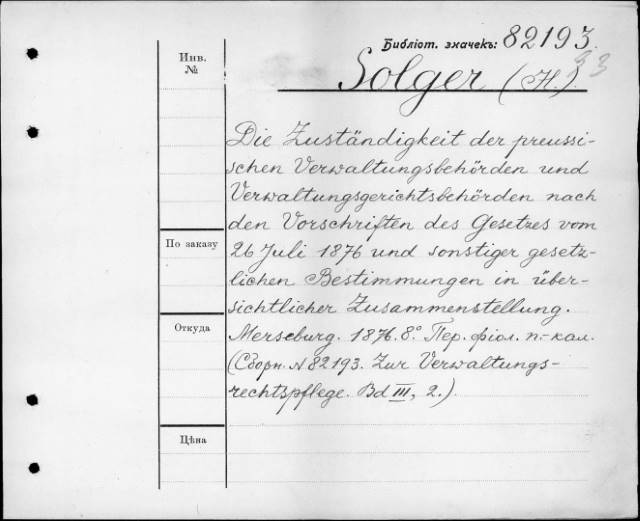 Библіот. значекъ: 82193.
33
Инв.
№
Solger (H.)
Die Zuständigkeit der preussi-
schen Verwaltungsbehörden und
Verwaltungsgerichtsbehörden nach
den Vorschriften des Gesetzes vom
По заказу
26 Juli 1876 und sonstiger gesetz-
lichen Bestimmungen in über-
sichtlicher Zusammenstellung.
Откуда
Merseburg. 1876. 8º. Пер. фіол. п.-кал.
(Сборн. N 82193. Zur Verwaltungs-
rechtspflege. Bd III, 2.)
Цѣна